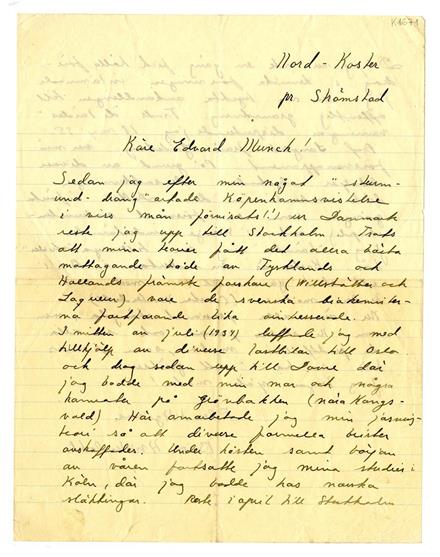 K1671
Nord - Koster
pr. Strömstad
Käre Edvard Munch!
Sedan jag efter min något "sturm-
und-drang" artade Köpenhamnsvistelse
i viss mån förvisats(!) ur Danmark
reste jag upp till Stockholm. Trots
att mina teorier fått det allra bästa
mottagande både av Tysklands och
Hollands främste forskare (Willstätter och
Laqueur) vore de svenska biokemister-
na fortfarande lika ointresserade.
I mitten av juli (1934) luffade jag med
tillhjälp av diverse lastbilar till Oslo
och drog sedan upp till där
jag bodde med min mor och några
på (nära Kongs-
vold) Här omarbetade jag min jäsnings-
teori så att diverse formella brister
avskaffades. Under hösten samt början
av våren fortsatte jag mina studier i
Köln, där jag bodde hos norska
släktingar. Reste i april till Stockholm